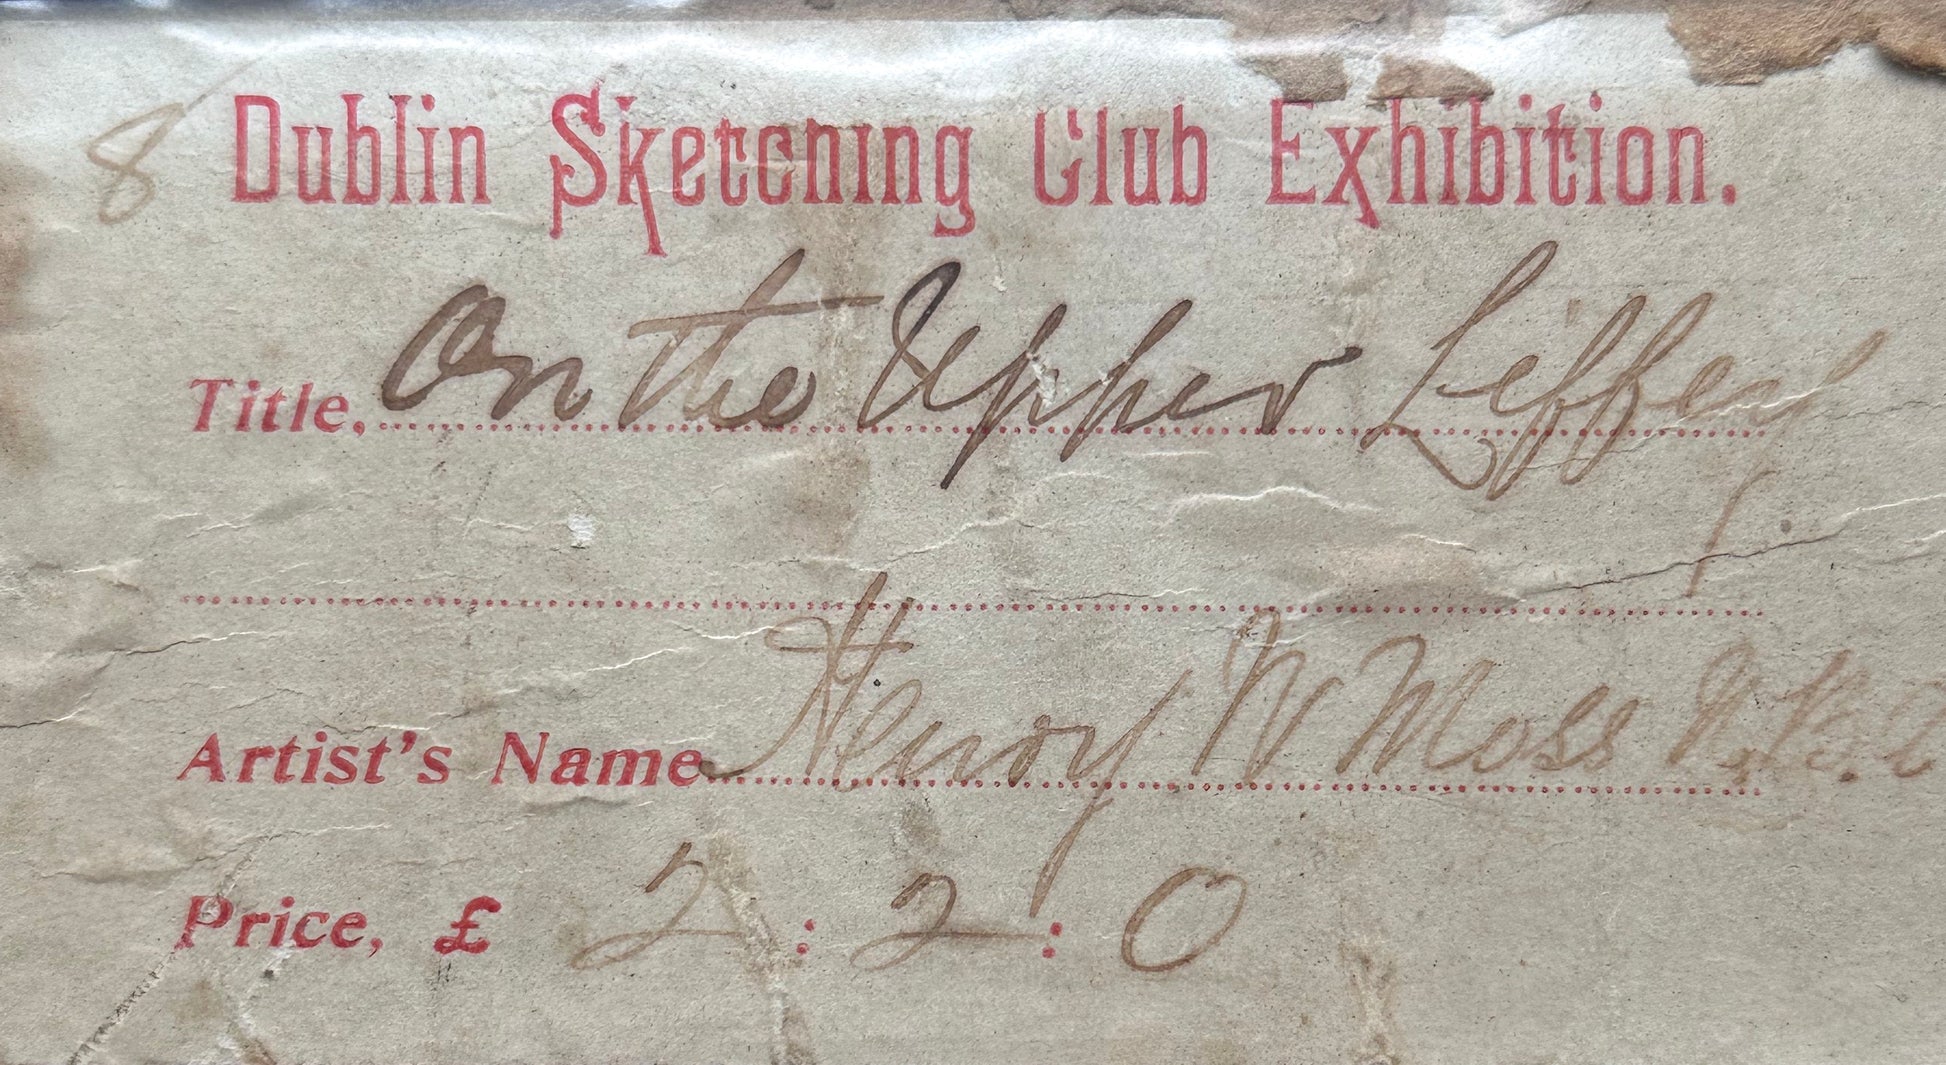 8 Dublin Sketching Club Exhibition.
Title, On the Upper Liffey
Artist's Name Henry W Moss
Price, £ 2 : 2 : 0